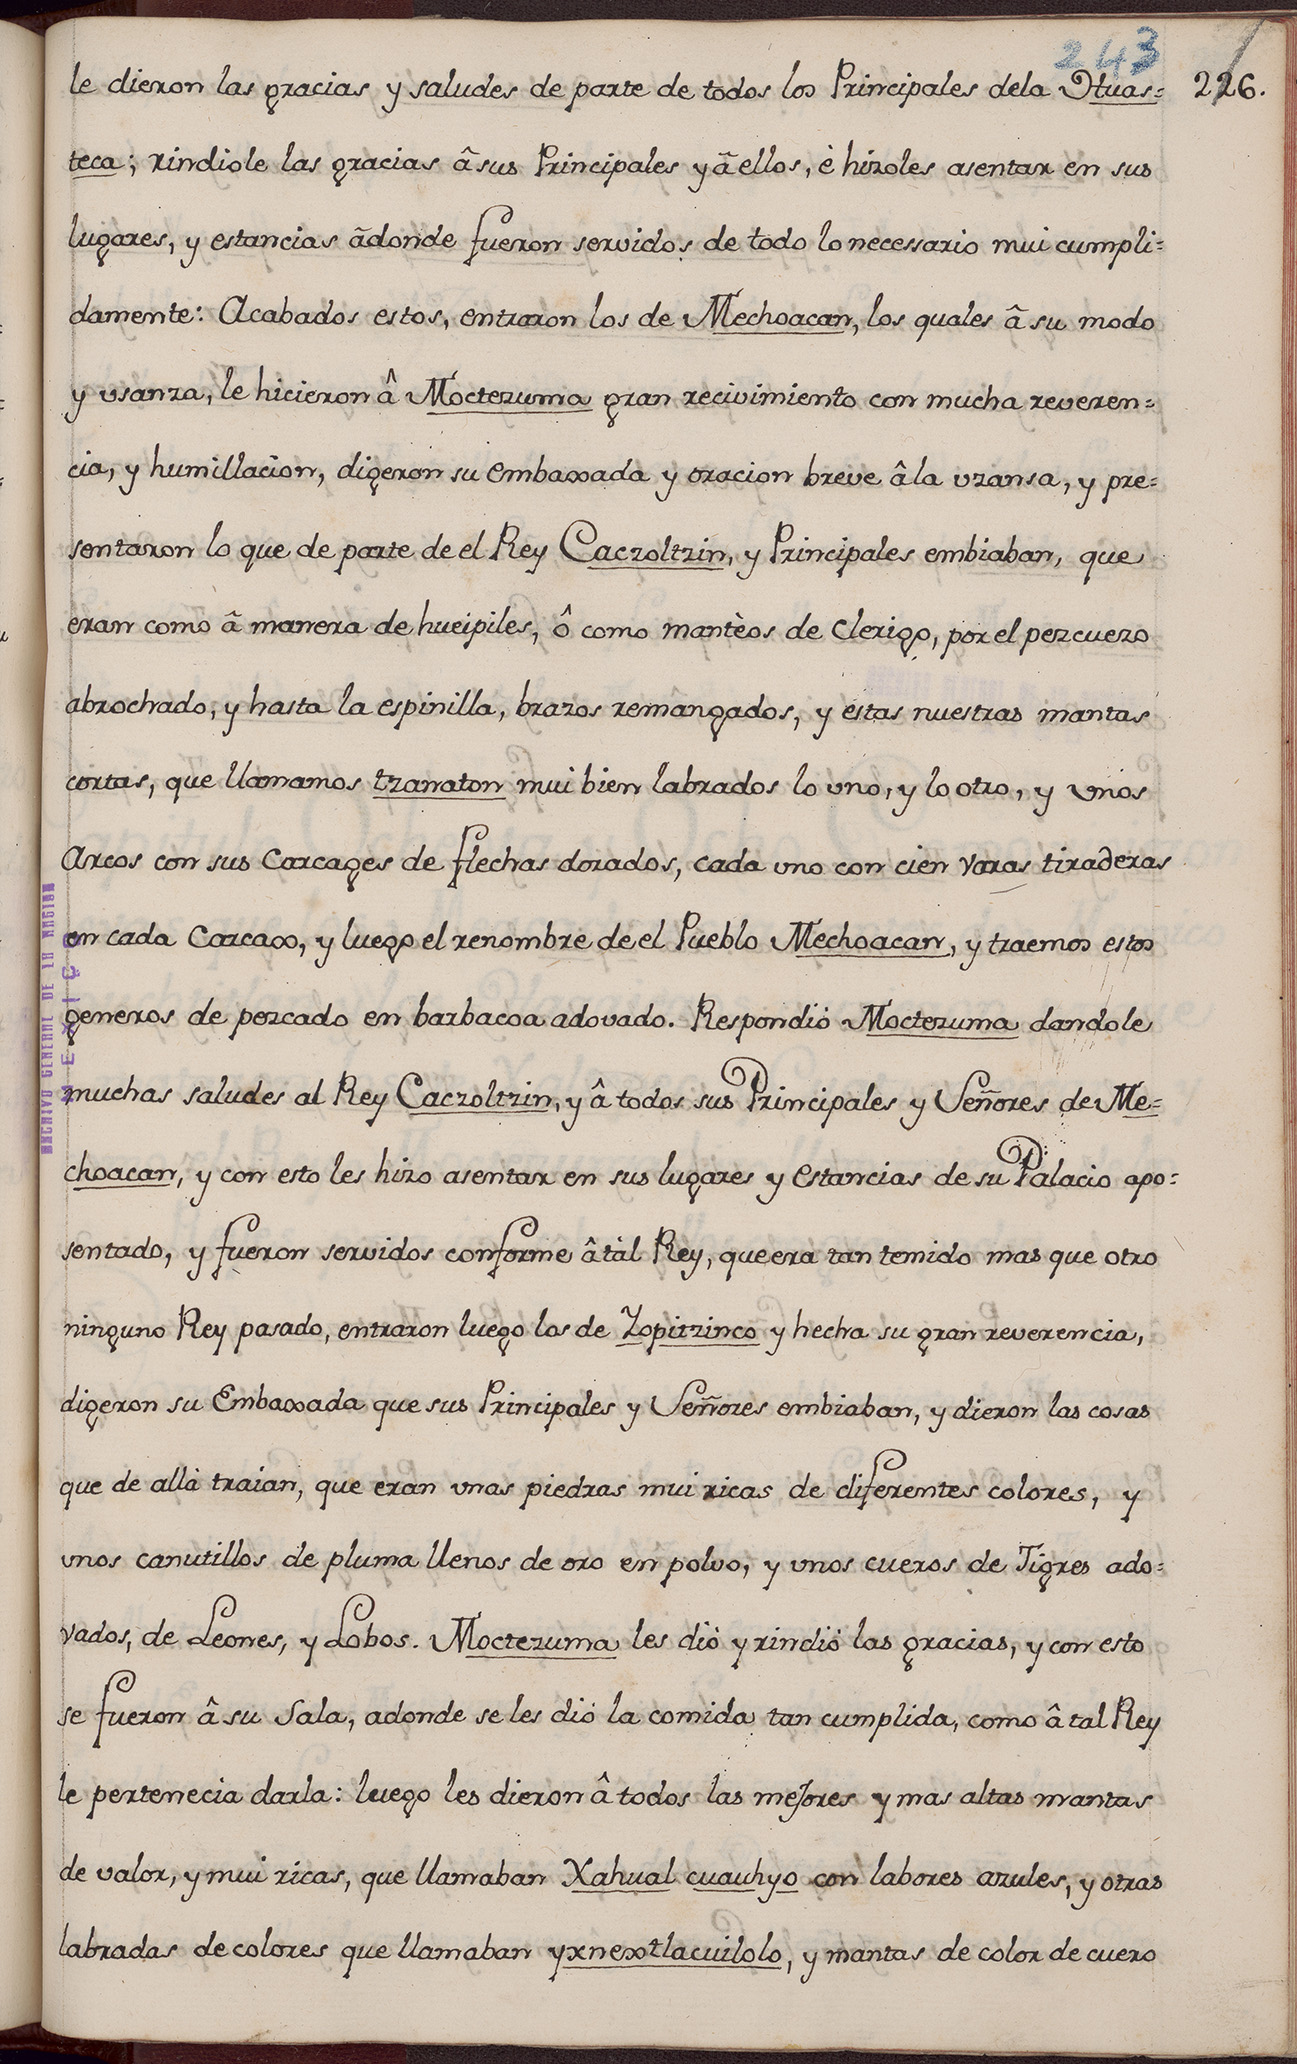 243
226.
le dieron las gracias y saludes de parte de todos los Principales dela Huas=
teca; rindiole las gracias â sus Principales y â ellos, è hizoles asentar en sus
lugares, y estancias âdonde fueron servidos de todo lo necessario mui cumpli=
damente: Acabados estos, entraron los de Mechoacan, los quales â su modo
y usanza, le hicieron â Moctezuma gran recivimiento con mucha reveren=
cia, y humillacion, digeron su embaxada y oracion breve â la uzansa, y pre=
sentaron lo que de parte de el Rey Caczoltzin, y Principales embiaban, que
eran como â manera de hueipiles, ô como mantèos de Clerigo, por el pezcuezo
abrochado, y hasta la espinilla, brazos remangados, y estas nuestras mantas
cortas, que llamamos tzanaton mui bien labrados lo uno, y lo otro, y unos
Arcos con sus Carcages de flechas dorados, cada uno con cien varas tiraderas
en cada Carcax, y luego el renombre de el Pueblo Mechoacan, y traemos estos
generos de pezcado en barbacoa adovado. Respondiò Moctezuma dandole
muchas saludes al Rey Caczoltzin, y â todos sus Principales y Señores de Me=
choacan, y con esto les hizo asentar en sus lugares y estancias de su Palacio apo=
sentado, y fueron servidos conforme â tàl Rey, que era tan temido mas que otro
ninguno Rey pasado, entraron luego los de Zopitzinco y hecha su gran reverencia,
digeron su Embaxada que sus Principales y Señores embiaban, y dieron las cosas
que de allà traian, que eran unas piedras mui ricas de diferentes colores, y
unos canutillos de pluma llenos de oro en polvo, y unos cueros de Tigres ado=
vados, de Leones, y Lobos. Moctezuma les diò y rindiò las gracias, y con esto
se fueron â su Sala, adonde se les diò la comida tan cumplida, como â tal Rey
le pertenecia darla: luego les dieron â todos las mejores y mas altas mantas
de valor, y mui ricas, que llamaban Xahual cuauhyo con labores azules, y otras
labradas de colores que llamaban yxnextlacuilolo, y mantas de color de cuero
ARCHIVO GENERAL DE LA NACION
MEXICO